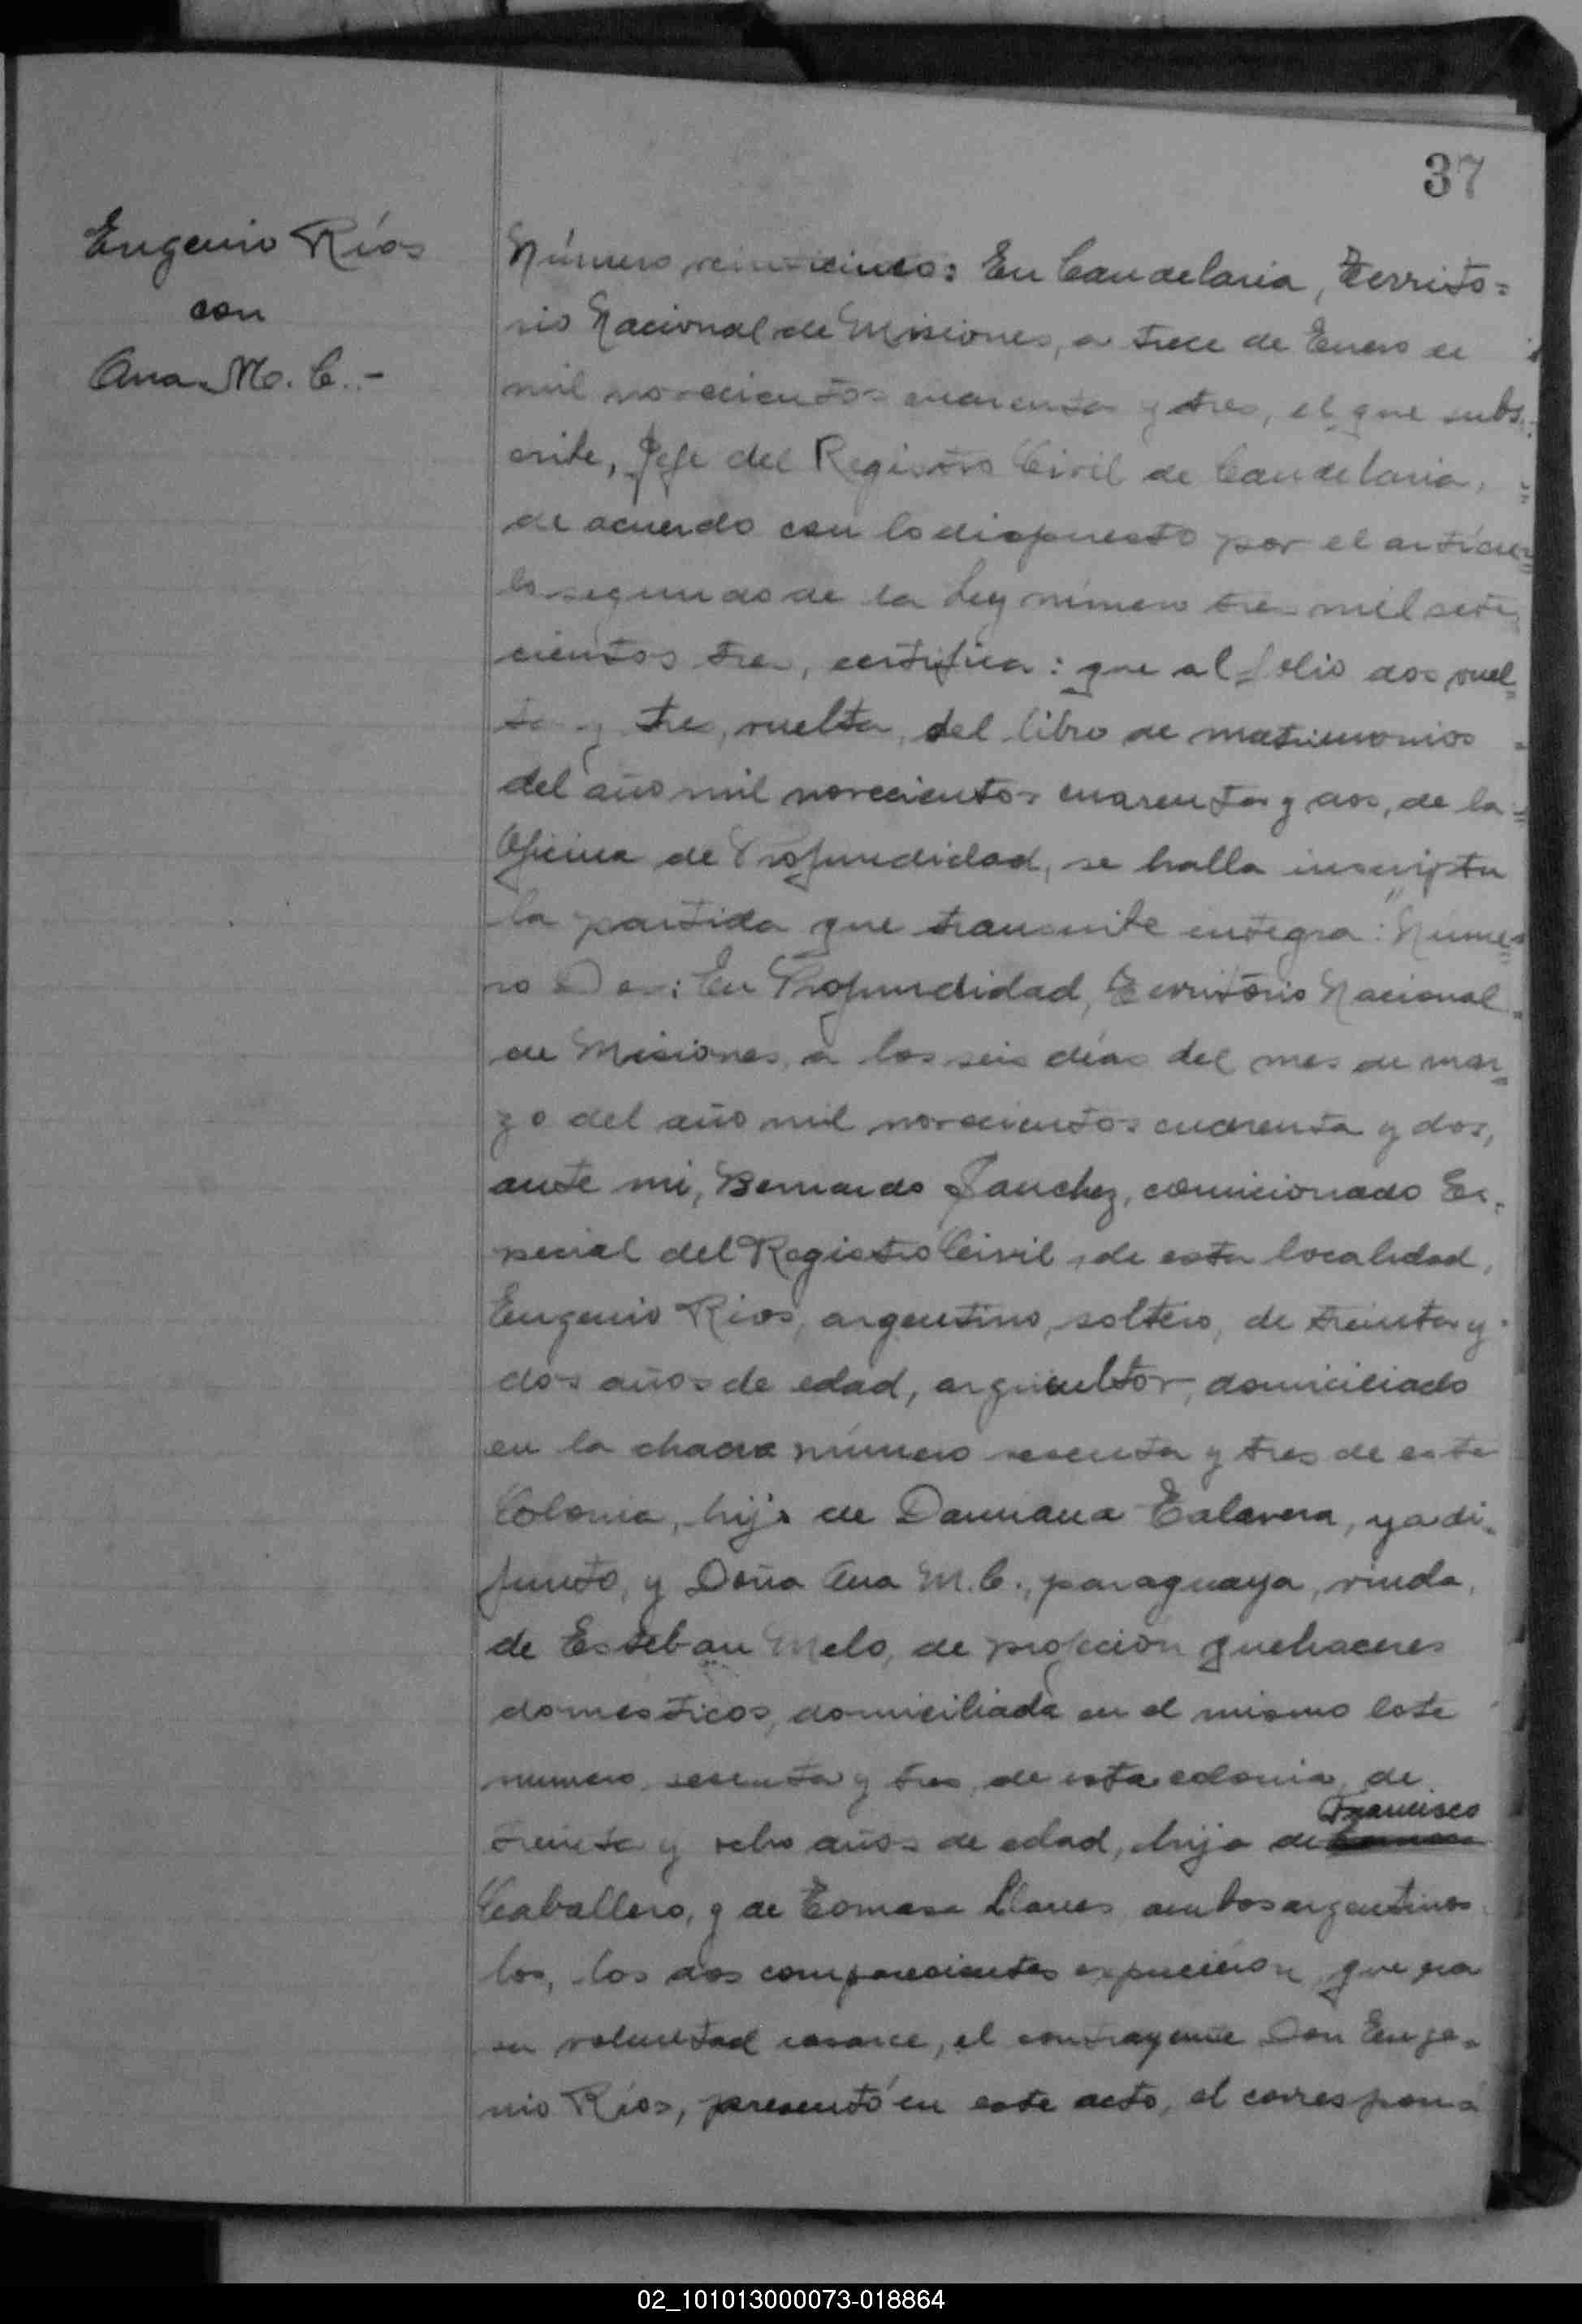 37
Eugenio Ríos
con
Ana M. C. -
Número veinticinco: En Candelaria, Territo=
rio Nacional de Misiones, a trece de Enero de
mil novecientos cuarenta y tres, el que subs=
cribe, Jefe del Registro Civil de Candelaria,
de acuerdo con lo dispuesto por el artícu=
lo segundo de la Ley número tres mil sete
cientos tres, certifica: que al folio dos vuel=
ta y tres, vuelta, del libro de matrimonios
del año mil novecientos cuarenta y dos, de la
Oficina de Profundidad, se halla inscripta
la partida que transcribe integra: "Núme=
ro Dos: En Profundidad, Territorio Nacional
de Misiones, a los seis días del mes de mar=
zo del año mil novecientos cuarenta y dos,
ante mi, Bernardo Sanchez, comicionado Es=
pecial del Registro Civil, de esta localidad,
Eugenio Rios, argentino, soltero, de treinta y
dos años de edad, argricultor, domiciliado
en la chacra número sesenta y tres de esta
Colonia, hijo de Damiana Talavera, ya di=
funto, y Doña Ana M. C., paraguaya, viuda,
de Esteban Melo, de profeción quehaceres
domésticos, domiciliada en el mismo lote
numero sesenta y tres, de esta colonia, de
Francisco
treinta y ocho años de edad, hija de
Caballero, y de Tomasa Llanes ambos argentinos
los, los dos comparecientes expucieron, que era
su voluntad casarce, el contrayente Don Euge=
nio Ríos, presentó en este acto, el correspon=
02_101013000073-018864